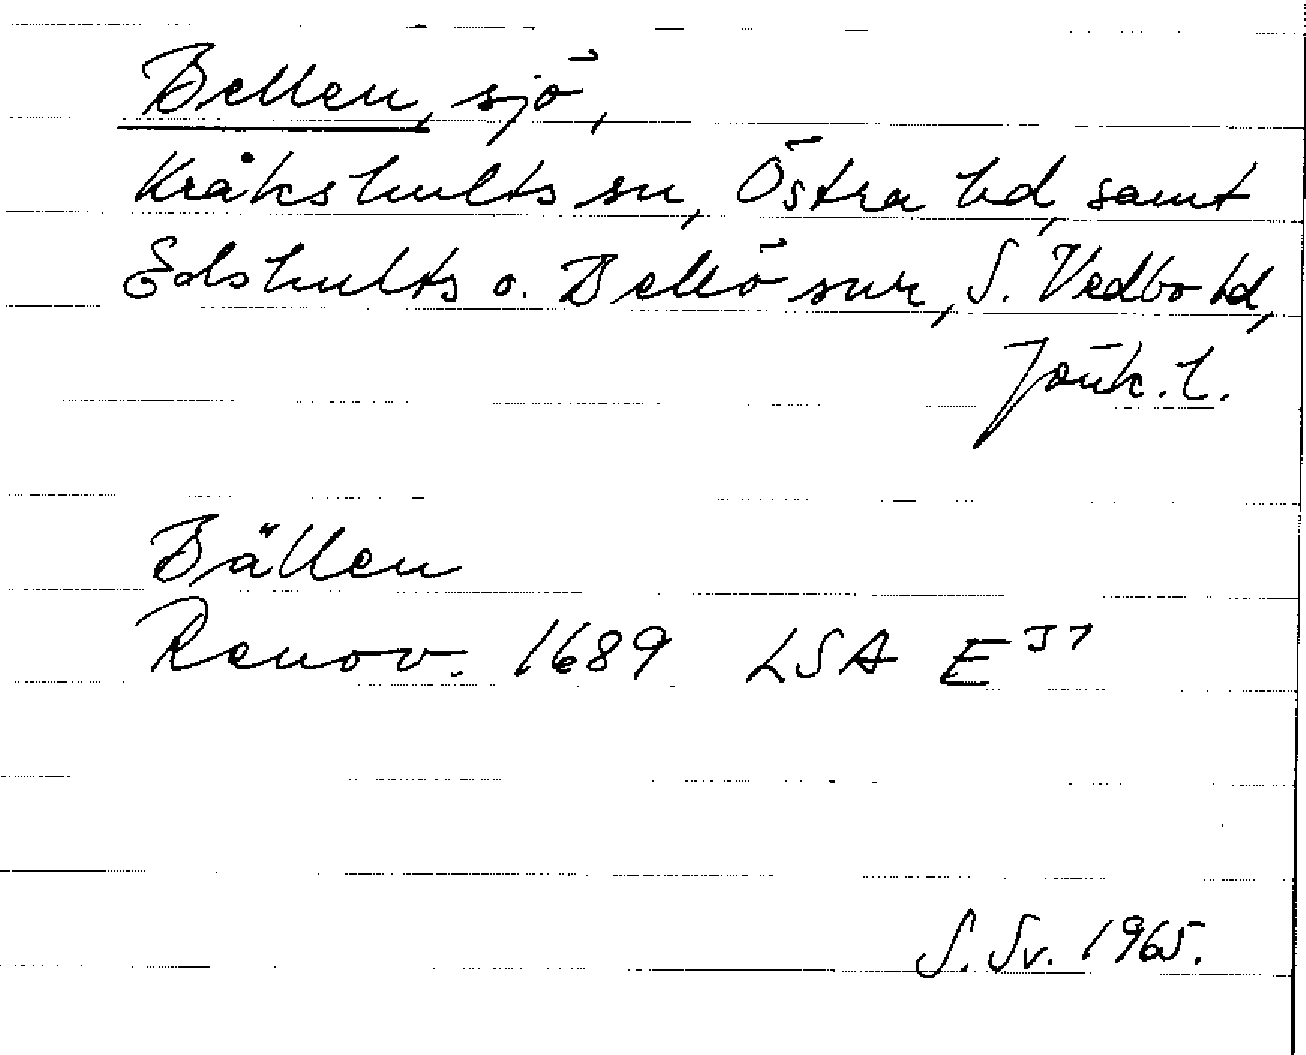 Bellen, sjö,
Kråkshults sn, Östra hd, samt
Edshults o. Bellö snr, S. Vedbo hd,
Jönk. l.
Bällen
Renov. 1689 LSA E³⁷
S. Sv. 1965.